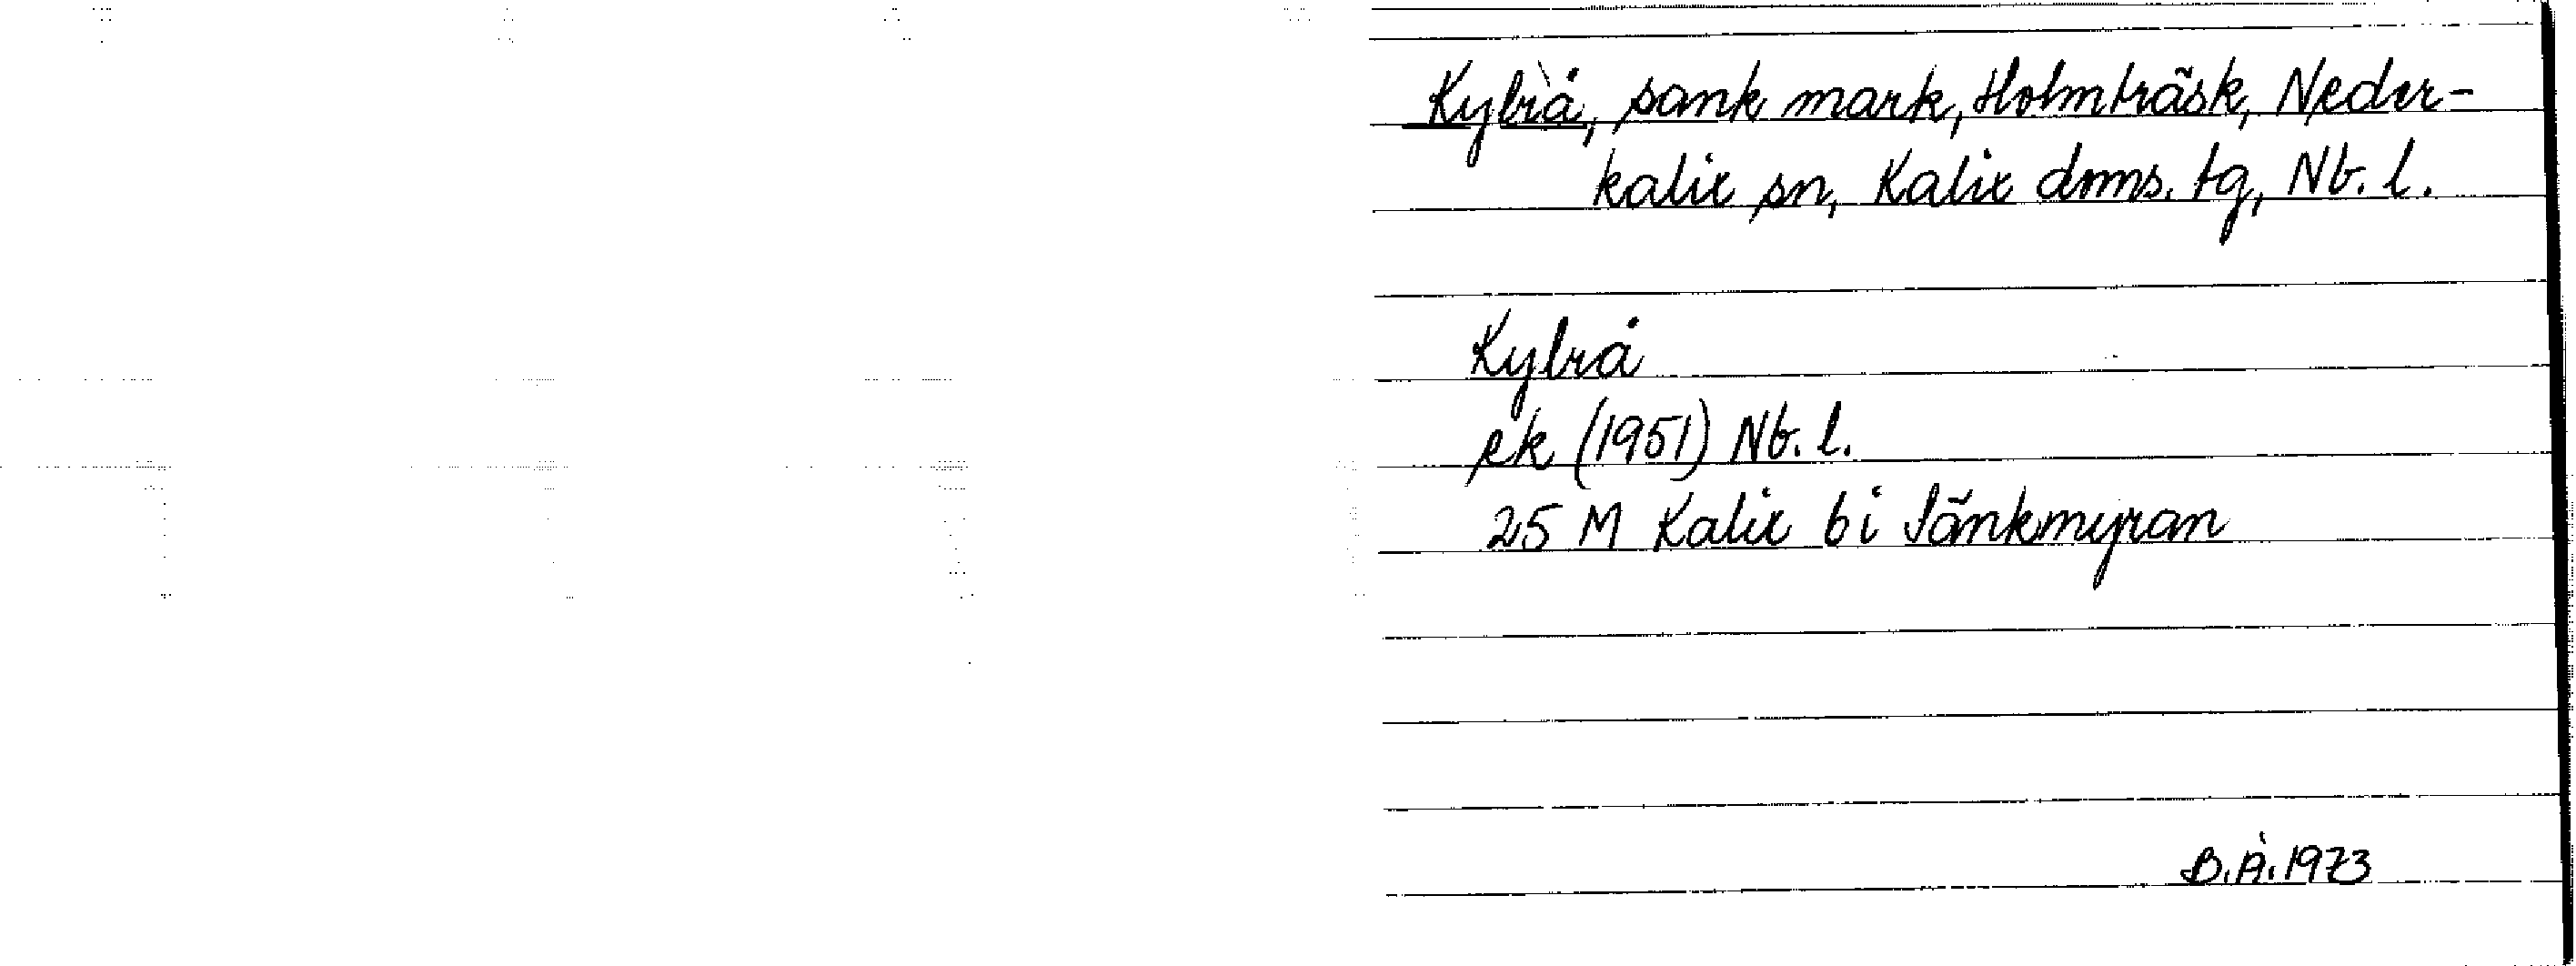 Kylrå, sank mark, Holmträsk, Neder-
kalix sn, Kalix dms. tg, Nb. l.
Kylrå
ek (1951) Nb. l.
25 M Kalix bi Sänkmyran
B.Å. 1973